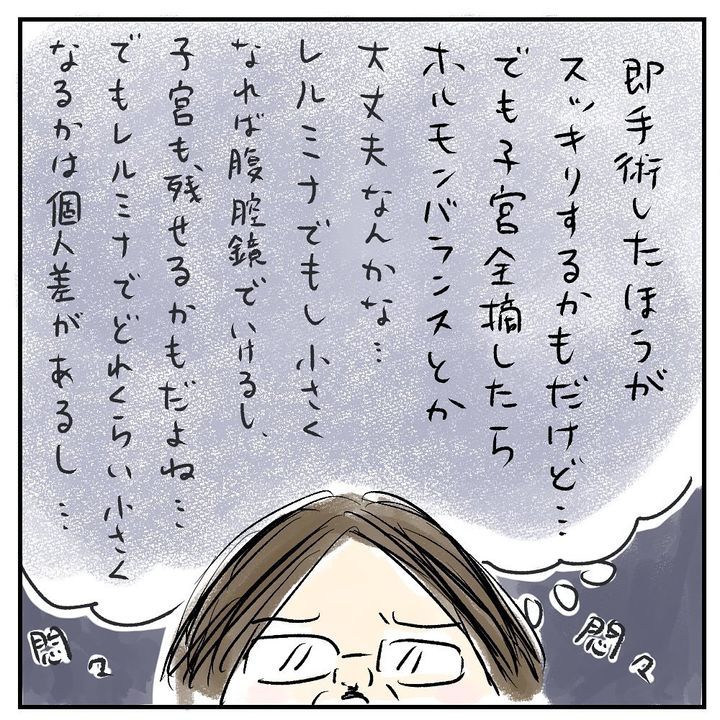 即手術したほうが
スッキリするかもだけど…
でも子宮全摘したら
ホルモンバランスとか
大丈夫なんかな…
レルミナでもし小さく
なれば腹腔鏡でいけるし、
子宮も残せるかもだよね…
でもレルミナでどれくらい小さく
なるかは個人差があるし…
悶々
悶々